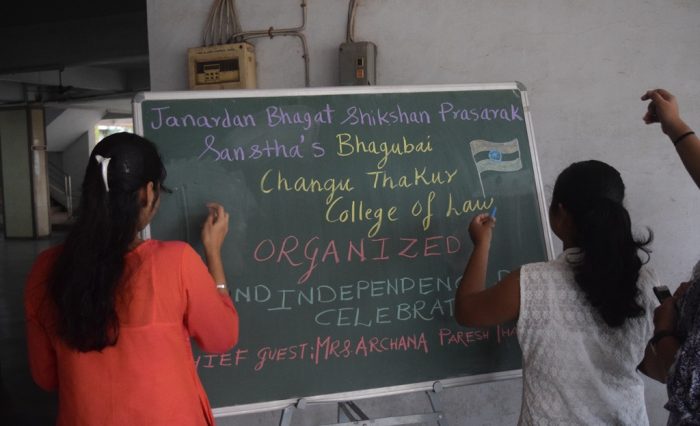 Janardan Bhagat Shikshan Prasarak
Sanstha's Bhagubai
Changu Thakur
College of Law
ORGANIZED
INDEPENDENC
CELEBRAT
CHIEF GUEST: MRS ARCHANA PARESH